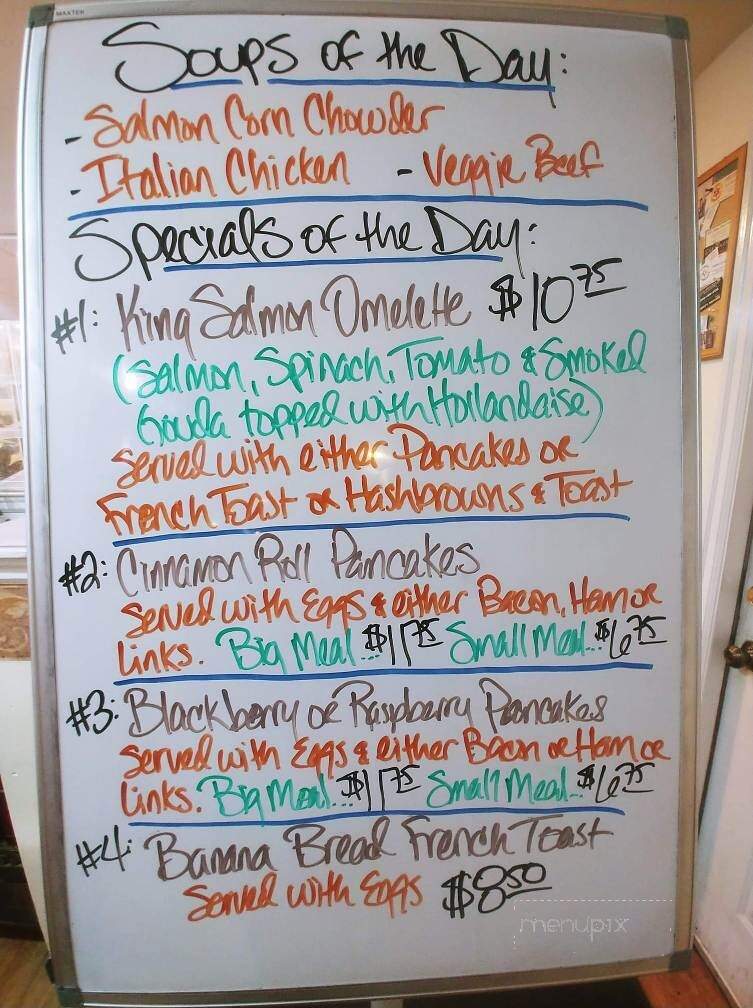 MAXTEK
Soups of the Day:
- Salmon Corn Chowder
- Italian Chicken - Veggie Beef
Specials of the Day:
#1: King Salmon Omelette $10.75
(Salmon, Spinach, Tomato & Smoked
Gouda topped with Hollandaise)
Served with either Pancakes or
French Toast or Hashbrowns & Toast
#2: Cinnamon Roll Pancakes
Served with Eggs & either Bacon, Ham or
Links. Big Meal... $11.75 Small Meal... $6.75
#3: Blackberry or Raspberry Pancakes
Served with Eggs & either Bacon or Ham or
Links. Big Meal... $11.75 Small Meal... $6.75
#4: Banana Bread French Toast
Served with Eggs $8.50
menupix